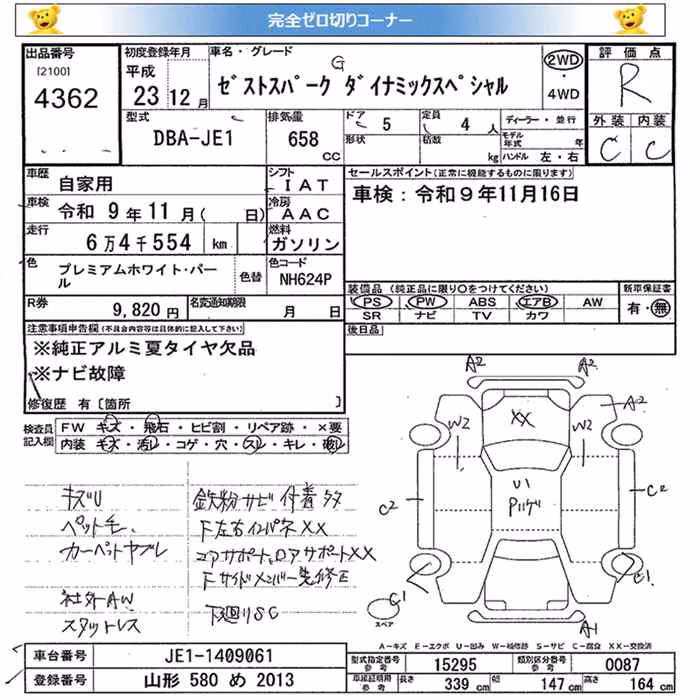 完全ゼロ切りコーナー
出品番号
[2100]
4362
初度登録年月
平成
23 12 月
車名・グレード
G
ゼストスパーク ダイナミックスペシャル
2WD
・
4WD
評価点
R
外装 内装
C C
型式
DBA-JE1
排気量
658
CC
ドア 5
形状
定員 4 人
積載 kg
ディーラー・並行
モデル年式 年
ハンドル 左・右
車歴 自家用
シフト IAT
車検 令和 9 年 11 月( 日)
冷房 AAC
走行 6 万 4 千 554 km
燃料 ガソリン
色 プレミアムホワイト・パール
色替
色コード NH624P
R券 9,820 円
名変通知期限 月 日
セールスポイント(正常に機能するものに限ります)
車検:令和9年11月16日
装備品 (純正品に限り○をつけてください)
PS PW ABS エアB AW
SR ナビ TV カワ
新車保証書
有・無
後日品
注意事項申告欄(不具合内容等は具体的に記入して下さい)
※純正アルミ夏タイヤ欠品
※ナビ故障
修復歴 有[箇所 ]
検査員記入欄
FW キズ・飛石・ヒビ割・リペア跡・×要
内装 キズ・汚レ・コゲ・穴・スレ・キレ・破レ
キズU
ペット毛.
カーペットヤブレ
社外AW
スタットレス
鉄粉サビ付着タタ
F左右インパネXX
コアサポート,ロアサポートXX
Fサイドメンバー先修正
下廻りSC
A2
A2
A2
XX
W2
W2
U1
C2
C2
C1
C1
A1
スペア
A-キズ E-エクボ U-凹み W-補修跡 S-サビ C-腐食 XX-交換済
車台番号 JE1-1409061
登録番号 山形 580 め 2013
型式指定番号 参考 15295
類別区分番号 参考 0087
車庫証明用 参考 長さ 339 cm 幅 147 cm 高さ 164 cm